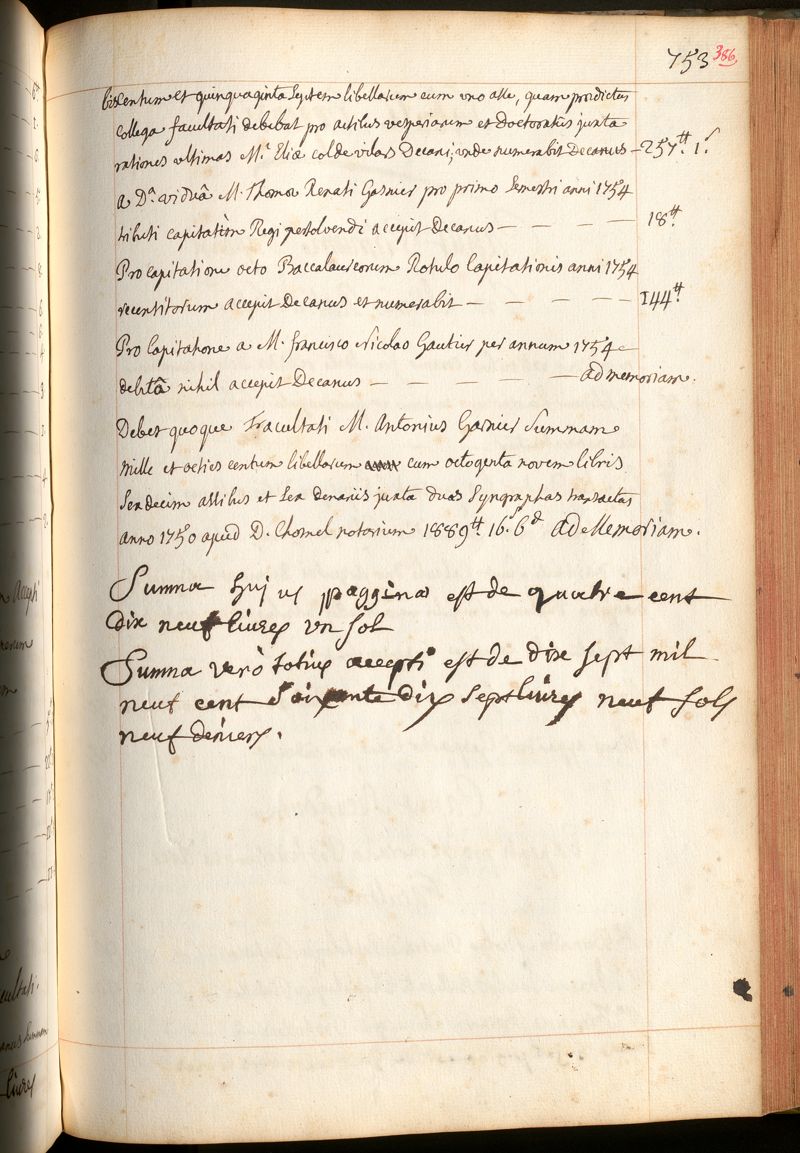 753 386
biscentum et quinquaginta Septem libellarum cum uno asse, quam prædictus
collega facultati debebat pro actibus vesperiarum et Doctoratus juxta
rationes ultimas M. Eliæ col de vilars Decani; unde numerabit Decanus - 257tt. 1s
a Da. viduâ M. Thomæ Renati Gasnier pro primo Semestri anni 1754
tributi capitationis Regi persolvendi accepit Decanus - - - - 18tt.
Pro capitatione octo Baccalaureorum Rotulo Capitationis anni 1754
recentitorum accepit Decanus et numerabit - - - - - 144tt.
Pro Capitatione a M. francisco Nicolao Gautier per annum 1754
debitâ nihil accepit Decanus - - - - - ad memoriam.
Debet quoque Facultati M. Antonius Garnier Summam
mille et octies centum libellarum cum octogenta novem libris
Sexdecim assibus et Sex denariis juxta duas Syngraphas transactas
anno 1750 apud D. Chomel notarium 1889tt. 16s. 6d ad Memoriam.
Summa hujus pagginæ est de quatre cent
dix neuf livres un sol
Summa verò totius accepti est de dix sept mil
neuf cent soixante dix sept livres neuf sols
neuf deniers.
accepti
livres